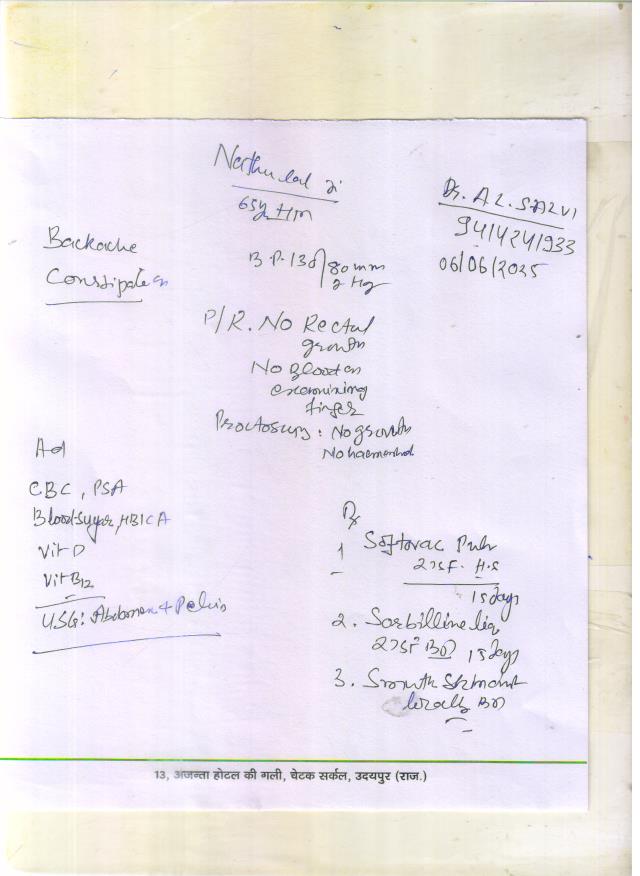 Nathulal Ji
65y HM
Dr. A L. SALVI
9414241933
06/06/2025
Backache
Constipation
B P. 130/80 mm
Hg
P/R. No Rectal
growth
No Blood on
examining
finger
Proctoscopy : No growth
No haemorrhoid
Ad
CBC, PSA
Blood Sugar, HBICA
Vit D
Vit B12
USG: Abdomen + Pelvis
Rx
1 Softovac
2TSF. H.S
15 days
2. Sorbilline liq
2TSF BD 15 days
3. Smuth
locally BD
13, अजन्ता होटल की गली, चेटक सर्कल, उदयपुर (राज.)